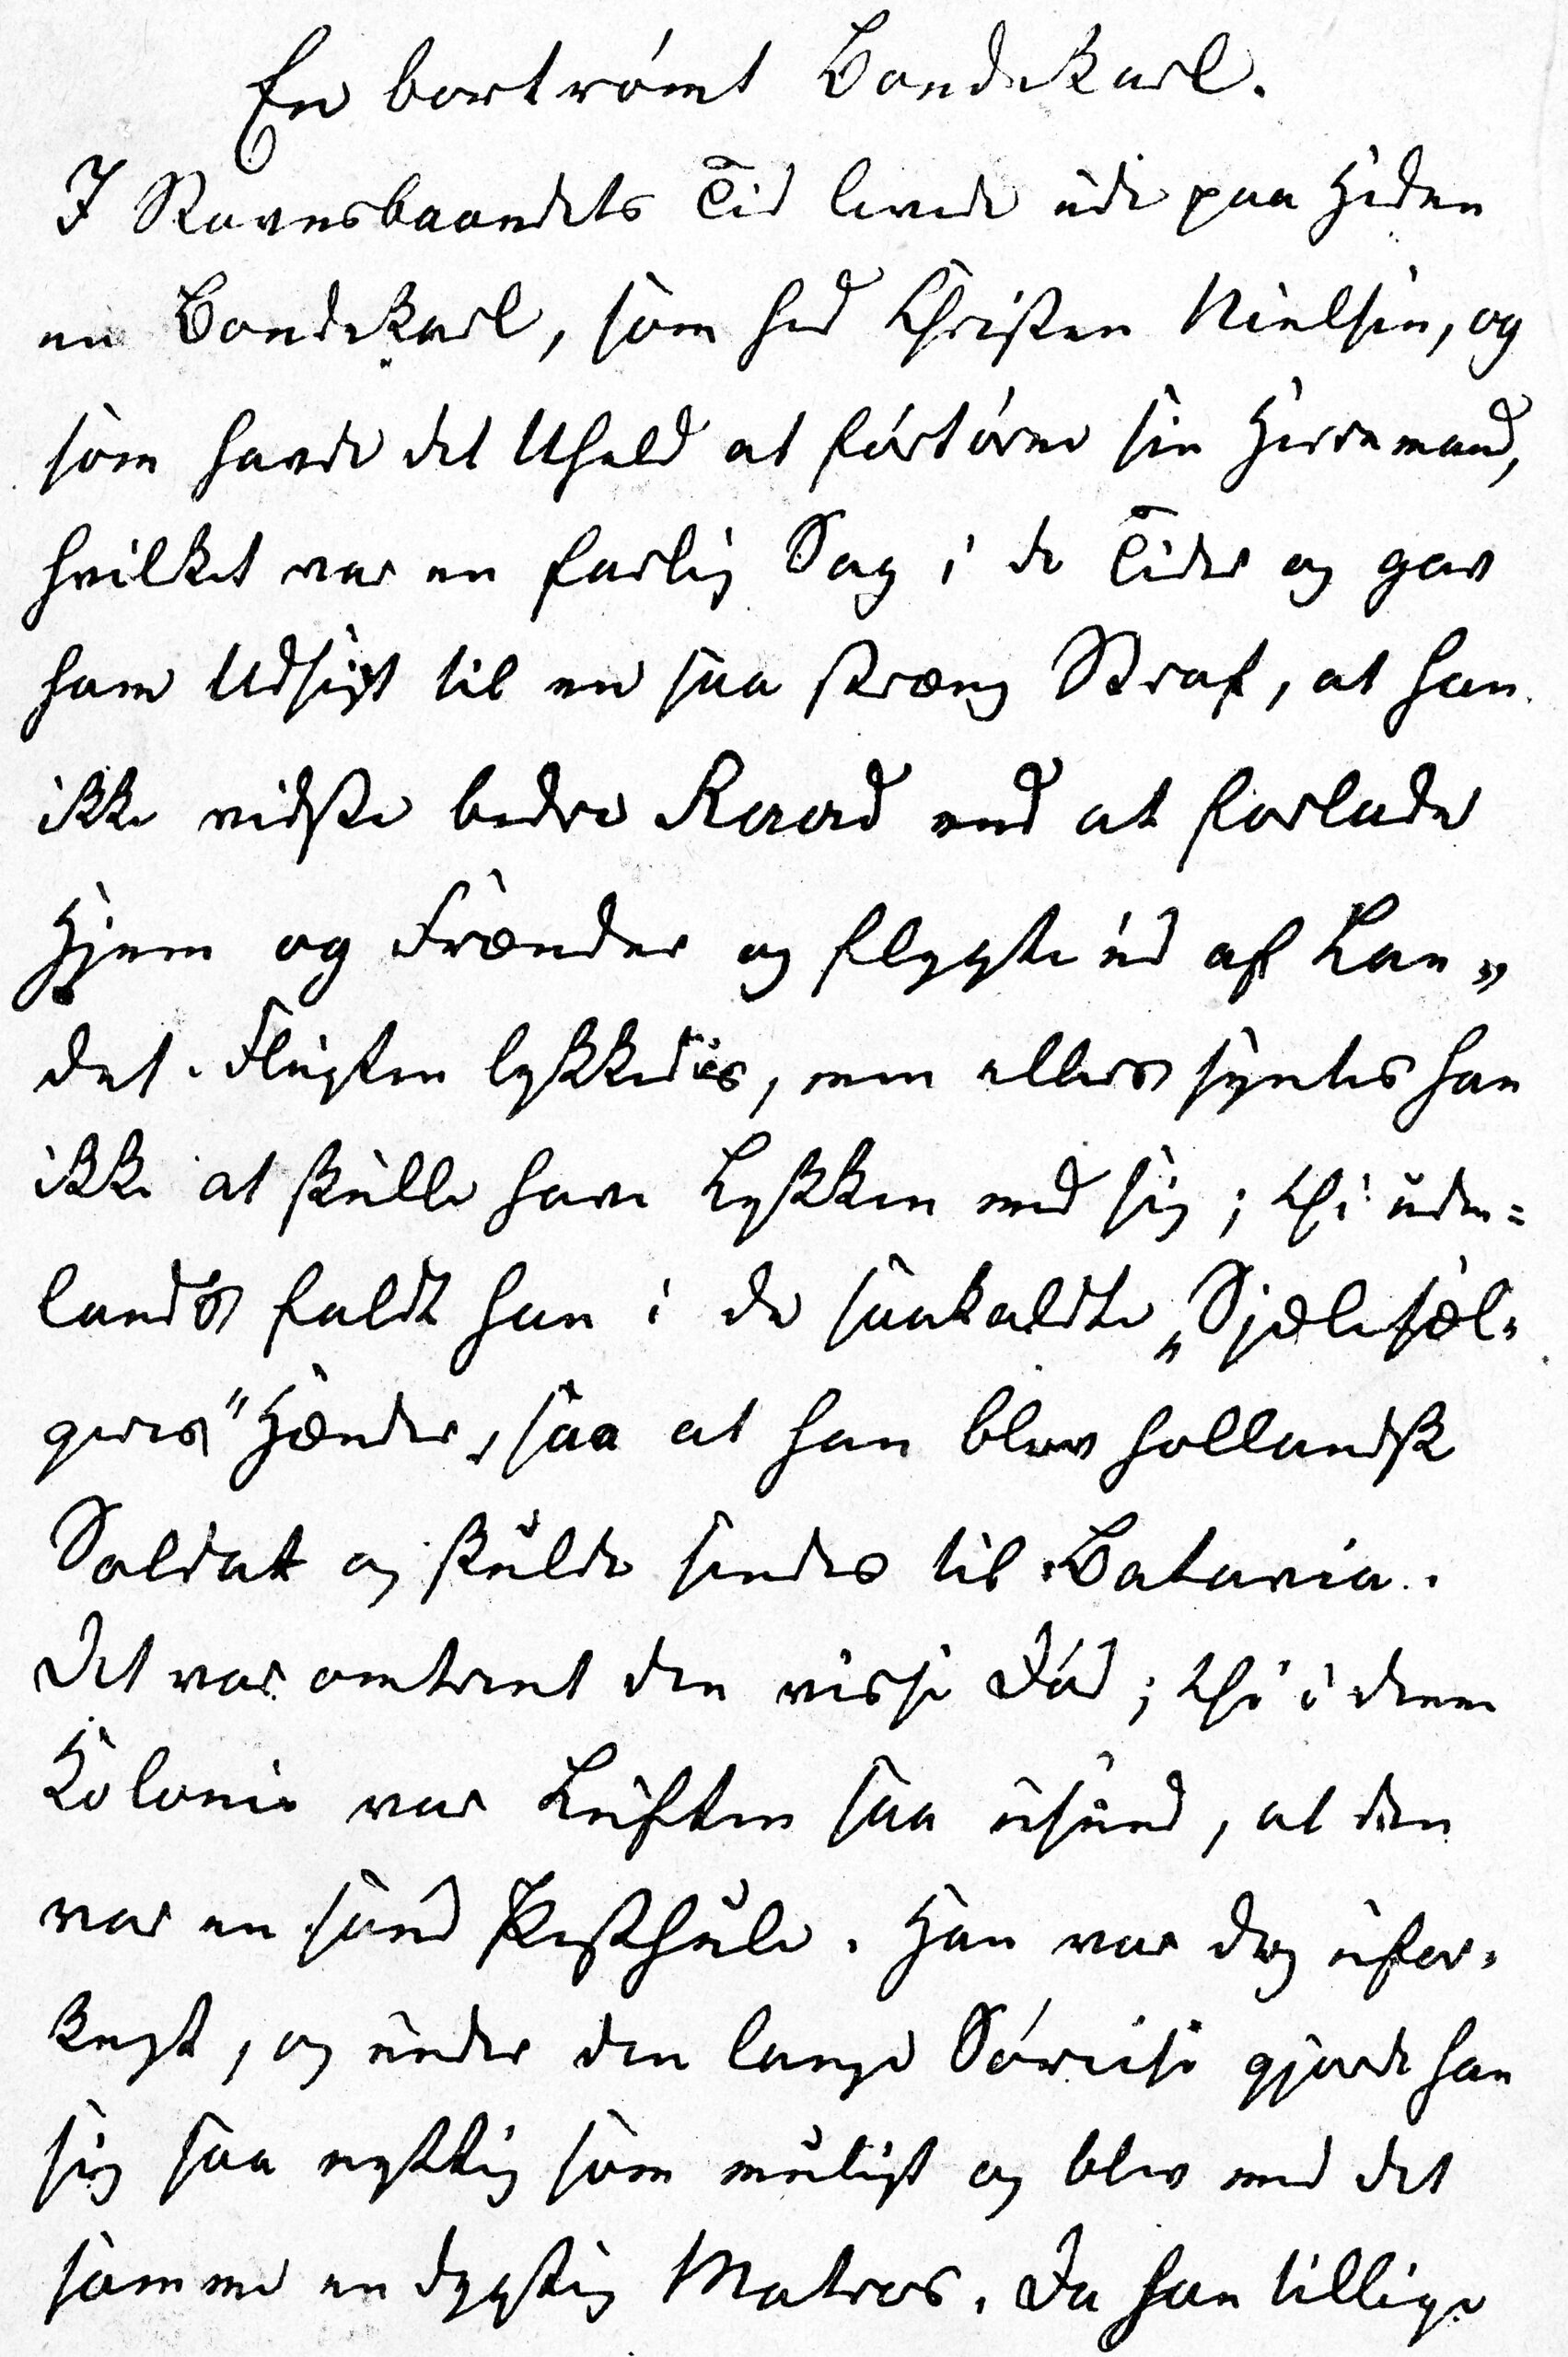 En bortrømt Bondekarl.
I Stavnsbaandets Tid levede ude paa Heden
en Bondekarl, som hed Christen Nielsen, og
som havde det Uheld at fortørne sin Herremand,
hvilket var en farlig Sag i de Tider og gav
ham Udsigt til en saa stræng Straf, at han
ikke vidste bedre Raad end at forlade
Hjem og Frænder og flygte ud af Lan„
det. Flugten lykkedes, men ellers syntes han
ikke at skulle have Lykken med sig; thi uden=
lands faldt han i de saakaldte „Sjælesæl-
geres" Hænder, saa at han blev hollandsk
Soldat og skulde sendes til Batavia.
Det var omtrent den visse Død; thi i denne
Koloni var Luften saa usund, at den
var en sand Pesthule. Han var dog ufor-
knyt, og under den lange Sørejse gjorde han
sig saa nyttig som muligt og blev med det
samme en dygtig Matros. Da han tillige